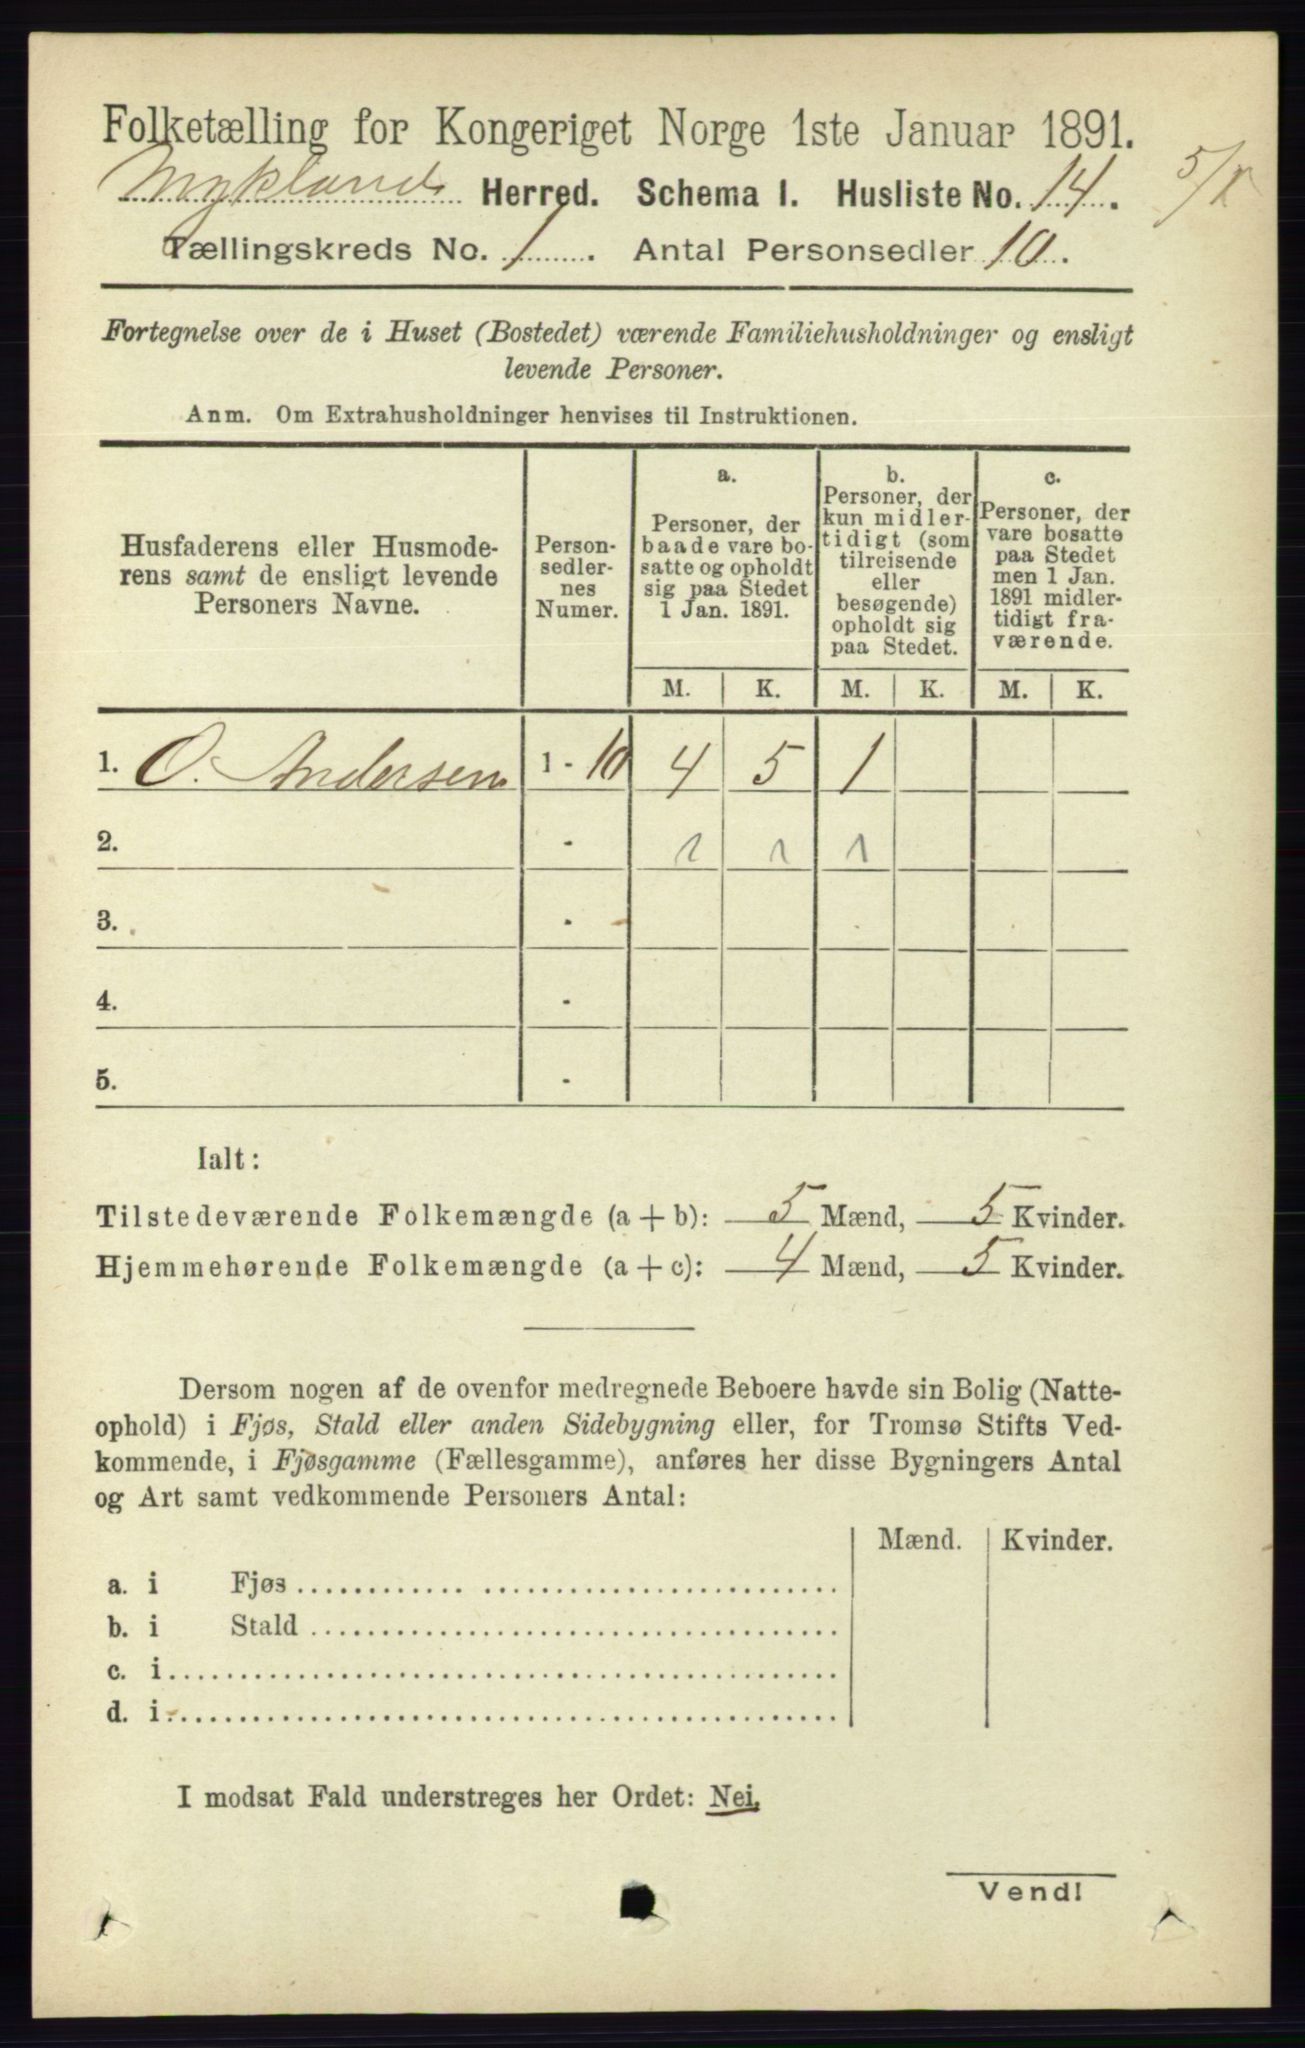 Folketælling for Kongeriget Norge 1ste Januar 1891.
Myklands Herred. Schema I. Husliste No. 14.
5/
Tællingskreds No. 1. Antal Personsedler 10.
Fortegnelse over de i Huset (Bostedet) værende Familiehusholdninger og ensligt
levende Personer.
Anm. Om Extrahusholdninger henvises til Instruktionen.
Husfaderens eller Husmode-
rens samt de ensligt levende
Personers Navne.
Person-
sedler-
nes
Numer.
a.
Personer, der
baade vare bo-
satte og opholdt
sig paa Stedet
1 Jan. 1891.
b.
Personer, der
kun midler-
tidigt (som
tilreisende
eller
besøgende)
opholdt sig
paa Stedet.
c.
Personer, der
vare bosatte
paa Stedet
men 1 Jan.
1891 midler-
tidigt fra-
værende.
M. K. M. K. M. K.
1. O. Andersen 1 - 10 4 5 1
2. - 1 1 1
3. -
4. -
5. -
Ialt:
Tilstedeværende Folkemængde (a + b): 5 Mænd, 5 Kvinder.
Hjemmehørende Folkemængde (a + c): 4 Mænd, 5 Kvinder.
Dersom nogen af de ovenfor medregnede Beboere havde sin Bolig (Natte-
ophold) i Fjøs, Stald eller anden Sidebygning eller, for Tromsø Stifts Ved-
kommende, i Fjøsgamme (Fællesgamme), anføres her disse Bygningers Antal
og Art samt vedkommende Personers Antal:
Mænd. Kvinder.
a. i Fjøs
b. i Stald
c. i
d. i
I modsat Fald understreges her Ordet: Nei.
Vend!